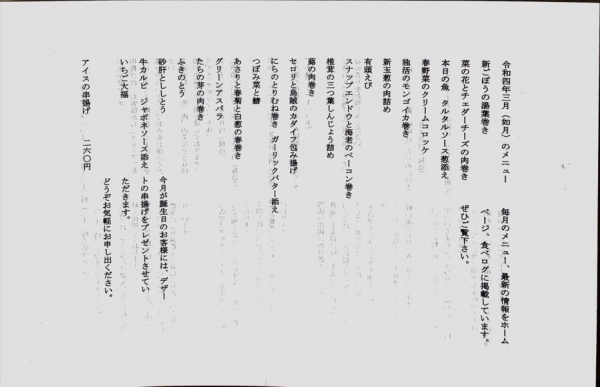 令和四年三月（如月）のメニュー
新ごぼうの湯葉巻き
菜の花とチェダーチーズの肉巻き
本日の魚　タルタルソース葱添え
春野菜のクリームコロッケ
独活のモンゴイカ巻き
新玉葱の肉詰め
有頭えび
スナップエンドウと海老のベーコン巻き
椎茸の三つ葉しんじょう詰め
蕗の肉巻き
セロリと烏賊のカダイフ包み揚げ
にらのとりむね巻き　ガーリックバター添え
つぼみ菜と鱚
あさりと春菊と白葱の春巻き
グリーンアスパラ
たらの芽の肉巻き
ふきのとう
砂肝とししとう
牛カルビ　ジャポネソース添え
いちご大福
アイスの串揚げ　二六〇円
毎月のメニュー、最新の情報をホーム
ページ、食べログに掲載しています。
ぜひご覧下さい。
今月が誕生日のお客様には、デザー
トの串揚げをプレゼントさせてい
ただきます。
どうぞお気軽にお申し出ください。